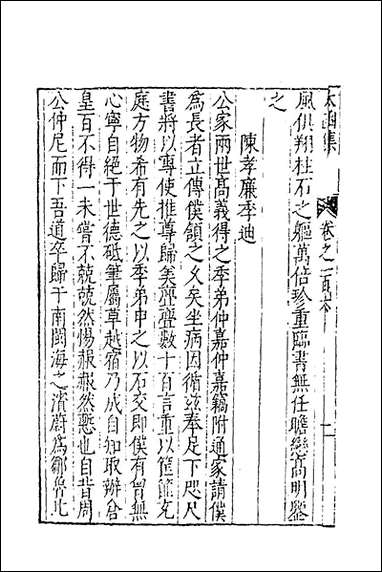 太函集
卷之一百六
二
風俱翔柱石之軀萬倍珍重臨書無任瞻戀高明鑒
之
陳孝廉季迪
公家兩世髙義得之季弟仲嘉仲嘉籍附通家請僕
為長者立傳僕領之乆矣坐病因循兹奉足下咫尺
書將以專使推尊歸美纚纚數十百言重以筐篚充
庭方物希有先之以季弟申之以石交即僕有胃無
心寧自絕于世德砥筆屬草越宿乃成自知取辦倉
皇百不得一未嘗不兢兢然惕赧赧然慙也自昔周
公仲尼而下吾道卒歸于南閩海之濱蔚為鄒魯北